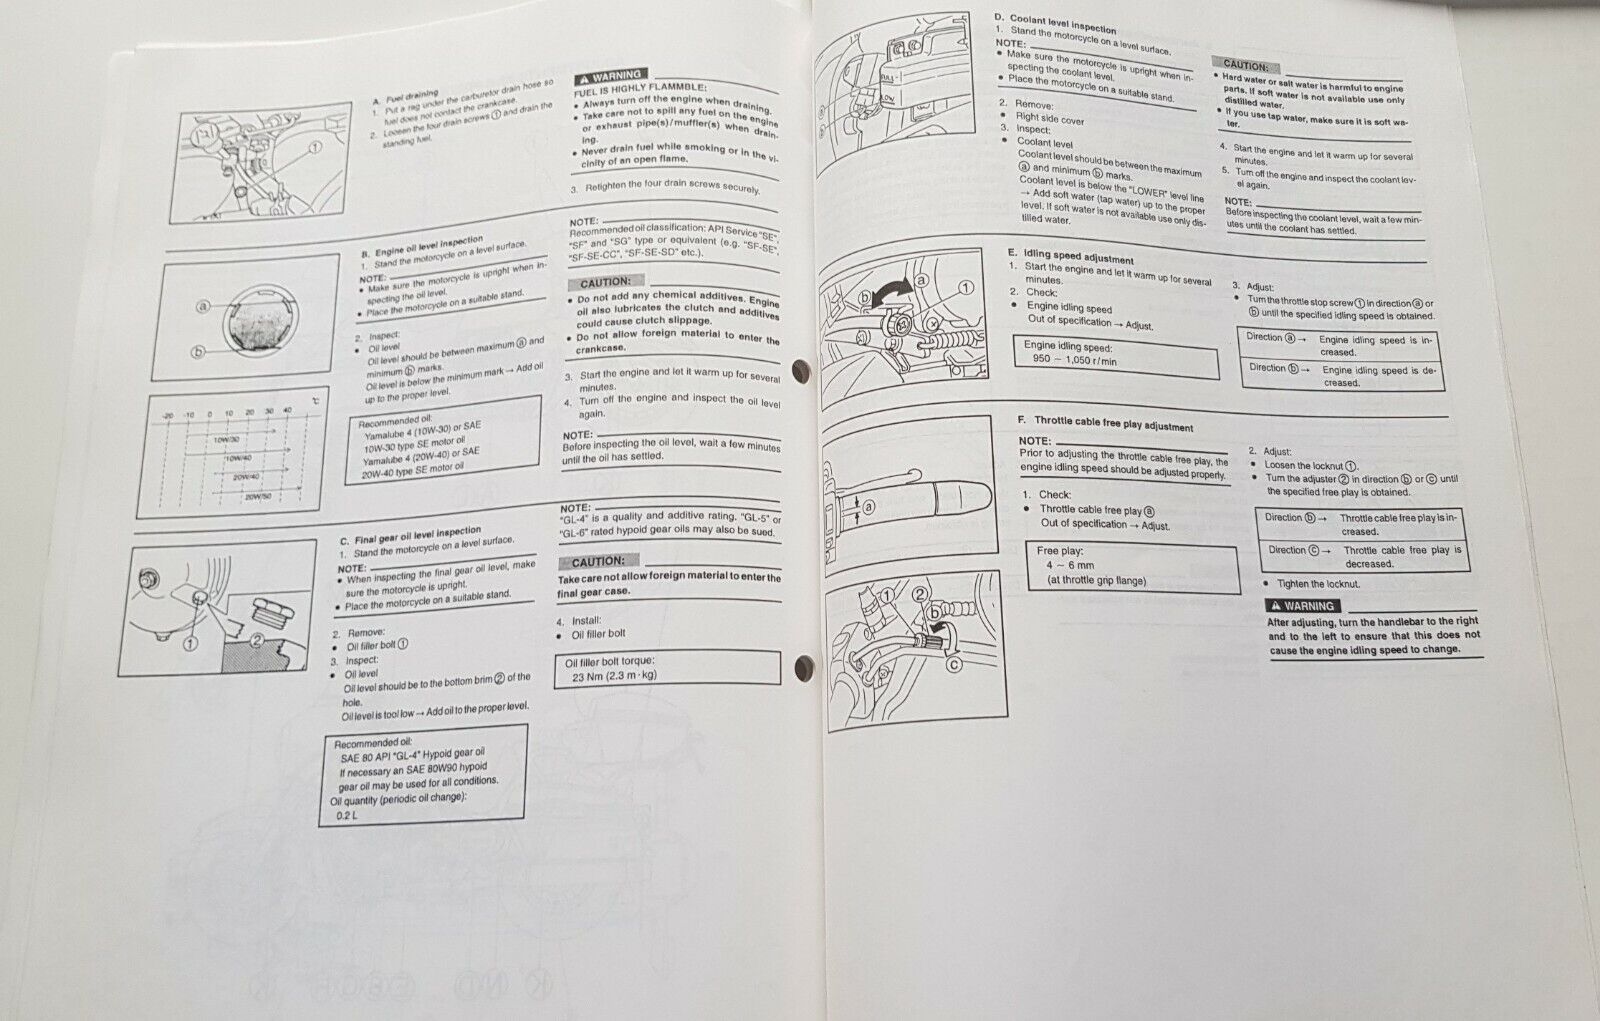 A. Fuel draining
1. Put a rag under the carburetor drain hose so
fuel does not contact the crankcase.
2. Loosen the four drain screws ① and drain the
standing fuel.
①
WARNING
FUEL IS HIGHLY FLAMMBLE:
● Always turn off the engine when draining.
● Take care not to spill any fuel on the engine
or exhaust pipe(s)/muffler(s) when drain-
ing.
● Never drain fuel while smoking or in the vi-
cinity of an open flame.
3. Retighten the four drain screws securely.
ⓐ
ⓑ
B. Engine oil level inspection
1. Stand the motorcycle on a level surface.
NOTE:
● Make sure the motorcycle is upright when in-
specting the oil level.
● Place the motorcycle on a suitable stand.
2. Inspect:
● Oil level
Oil level should be between maximum ⓐ and
minimum ⓑ marks.
Oil level is below the minimum mark → Add oil
up to the proper level.
-20 -10 0 10 20 30 40 °C
10W/30
10W/40
20W/40
20W/50
Recommended oil:
Yamalube 4 (10W-30) or SAE
10W-30 type SE motor oil
Yamalube 4 (20W-40) or SAE
20W-40 type SE motor oil
NOTE:
Recommended oil classification: API Service "SE",
"SF" and "SG" type or equivalent (e.g. "SF-SE",
"SF-SE-CC", "SF-SE-SD" etc.).
CAUTION:
● Do not add any chemical additives. Engine
oil also lubricates the clutch and additives
could cause clutch slippage.
● Do not allow foreign material to enter the
crankcase.
3. Start the engine and let it warm up for several
minutes.
4. Turn off the engine and inspect the oil level
again.
NOTE:
Before inspecting the oil level, wait a few minutes
until the oil has settled.
①
②
C. Final gear oil level inspection
1. Stand the motorcycle on a level surface.
NOTE:
● When inspecting the final gear oil level, make
sure the motorcycle is upright.
● Place the motorcycle on a suitable stand.
2. Remove:
● Oil filler bolt ①
3. Inspect:
● Oil level
Oil level should be to the bottom brim ② of the
hole.
Oil level is tool low → Add oil to the proper level.
Recommended oil:
SAE 80 API "GL-4" Hypoid gear oil
If necessary an SAE 80W90 hypoid
gear oil may be used for all conditions.
Oil quantity (periodic oil change):
0.2 L
NOTE:
"GL-4" is a quality and additive rating. "GL-5" or
"GL-6" rated hypoid gear oils may also be sued.
CAUTION:
Take care not allow foreign material to enter the
final gear case.
4. Install:
● Oil filler bolt
Oil filler bolt torque:
23 Nm (2.3 m · kg)
FULL
LOW
D. Coolant level inspection
1. Stand the motorcycle on a level surface.
NOTE:
● Make sure the motorcycle is upright when in-
specting the coolant level.
● Place the motorcycle on a suitable stand.
2. Remove:
● Right side cover
3. Inspect:
● Coolant level
Coolant level should be between the maximum
ⓐ and minimum ⓑ marks.
Coolant level is below the "LOWER" level line
→ Add soft water (tap water) up to the proper
level. If soft water is not available use only dis-
tilled water.
CAUTION:
● Hard water or salt water is harmful to engine
parts. If soft water is not available use only
distilled water.
● If you use tap water, make sure it is soft wa-
ter.
4. Start the engine and let it warm up for several
minutes.
5. Turn off the engine and inspect the coolant lev-
el again.
NOTE:
Before inspecting the coolant level, wait a few min-
utes until the coolant has settled.
ⓐ
ⓑ
①
E. Idling speed adjustment
1. Start the engine and let it warm up for several
minutes.
2. Check:
● Engine idling speed
Out of specification → Adjust.
Engine idling speed:
950 ~ 1,050 r/min
3. Adjust:
● Turn the throttle stop screw ① in direction ⓐ or
ⓑ until the specified idling speed is obtained.
Direction ⓐ → Engine idling speed is in-
creased.
Direction ⓑ → Engine idling speed is de-
creased.
ⓐ
①
②
ⓑ
ⓒ
F. Throttle cable free play adjustment
NOTE:
Prior to adjusting the throttle cable free play, the
engine idling speed should be adjusted properly.
1. Check:
● Throttle cable free play ⓐ
Out of specification → Adjust.
Free play:
4 ~ 6 mm
(at throttle grip flange)
2. Adjust:
● Loosen the locknut ①.
● Turn the adjuster ② in direction ⓑ or ⓒ until
the specified free play is obtained.
Direction ⓑ → Throttle cable free play is in-
creased.
Direction ⓒ → Throttle cable free play is
decreased.
● Tighten the locknut.
WARNING
After adjusting, turn the handlebar to the right
and to the left to ensure that this does not
cause the engine idling speed to change.